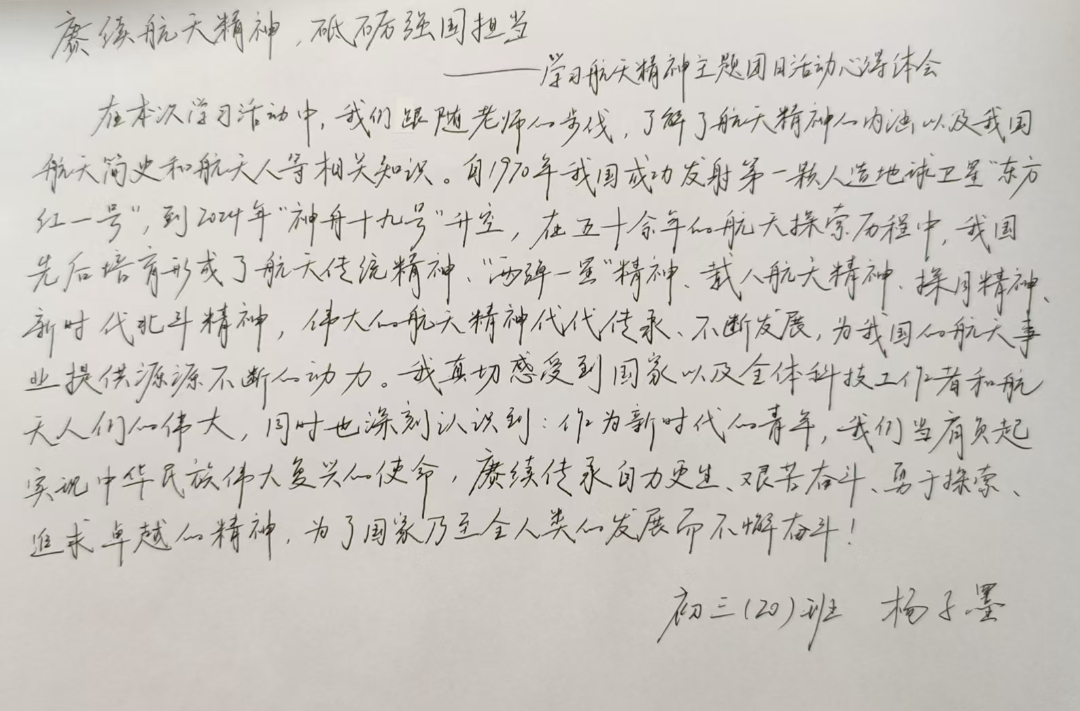 赓续航天精神，砥砺强国担当
——学习航天精神主题团日活动心得体会
在本次学习活动中，我们跟随老师的步伐，了解了航天精神的内涵以及我国
航天简史和航天人等相关知识。自1970年我国成功发射第一颗人造地球卫星"东方
红一号"，到2024年"神舟十九号"升空，在五十余年的航天探索历程中，我国
先后培育形成了航天传统精神、"两弹一星"精神、载人航天精神、探月精神、
新时代北斗精神，伟大的航天精神代代传承、不断发展，为我国的航天事
业提供源源不断的动力。我真切感受到国家以及全体科技工作者和航
天人们的伟大，同时也深刻认识到：作为新时代的青年，我们当肩负起
实现中华民族伟大复兴的使命，赓续传承自力更生、艰苦奋斗、勇于探索、
追求卓越的精神，为了国家乃至全人类的发展而不懈奋斗！
初三（20）班 杨子墨